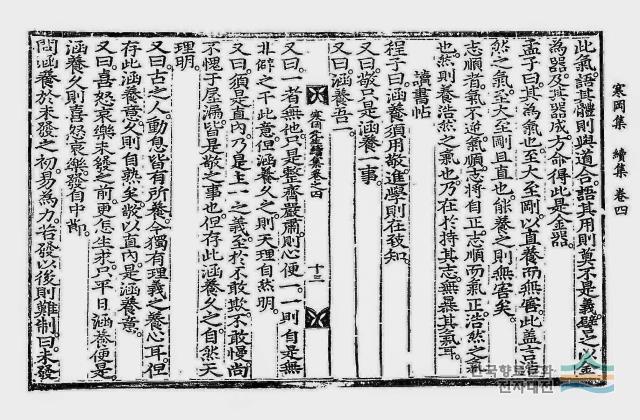 寒岡集 續集 卷四
此氣語其體則與道合語其用則莫不是義譬之以金
為器及其器成方命得此是金器
孟子曰其為氣也至大至剛以直養而無害此蓋言浩
然之氣至大至剛且直也能養之則無害矣
志順者氣不逆氣順志將自正志順而氣正浩然之氣
也然則養浩然之氣也乃在於持其志無暴其氣耳
讀書帖
程子曰涵養須用敬進學則在致知
又曰敬只是涵養一事
又曰涵養吾一
寒岡先生續集卷之四 十三
又曰一者無他只是整齊嚴肅則心便一一則自是無
非僻之干此意但涵養久之則天理自然明
又曰須是直內乃是主一之義至於不敢欺不敢慢尚
不愧于屋漏皆是敬之事也但存此涵養久之自然天
理明
又曰古之人動息皆有所養今獨有理義之養心耳但
存此涵養意久則自熟矣敬以直內是涵養意
又曰喜怒哀樂未發之前更怎生求只平日涵養便是
涵養久則喜怒哀樂發自中節
問涵養於未發之初易為力若發以後則難制曰未發
한국향토문화
전자대전